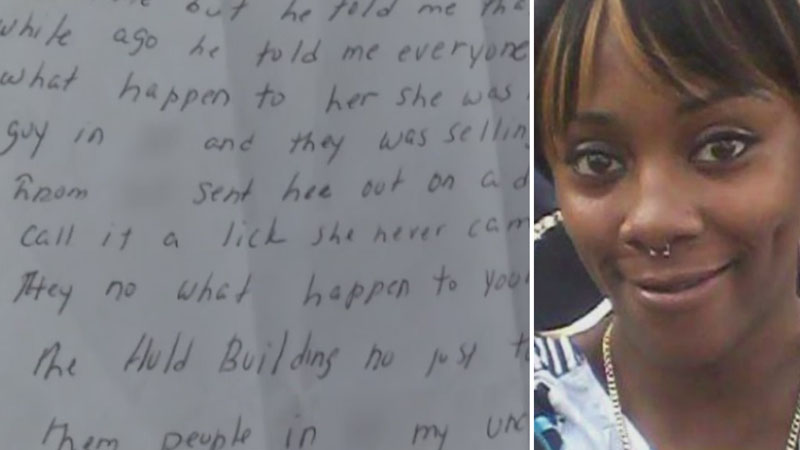 but he told me tha
while ago he told me everyone
what happen to her she was
guy in and they was selling
from sent hee out on a d
call it a lick she never cam
They no what happen to your
the Huld Building no just t
them people in my unc